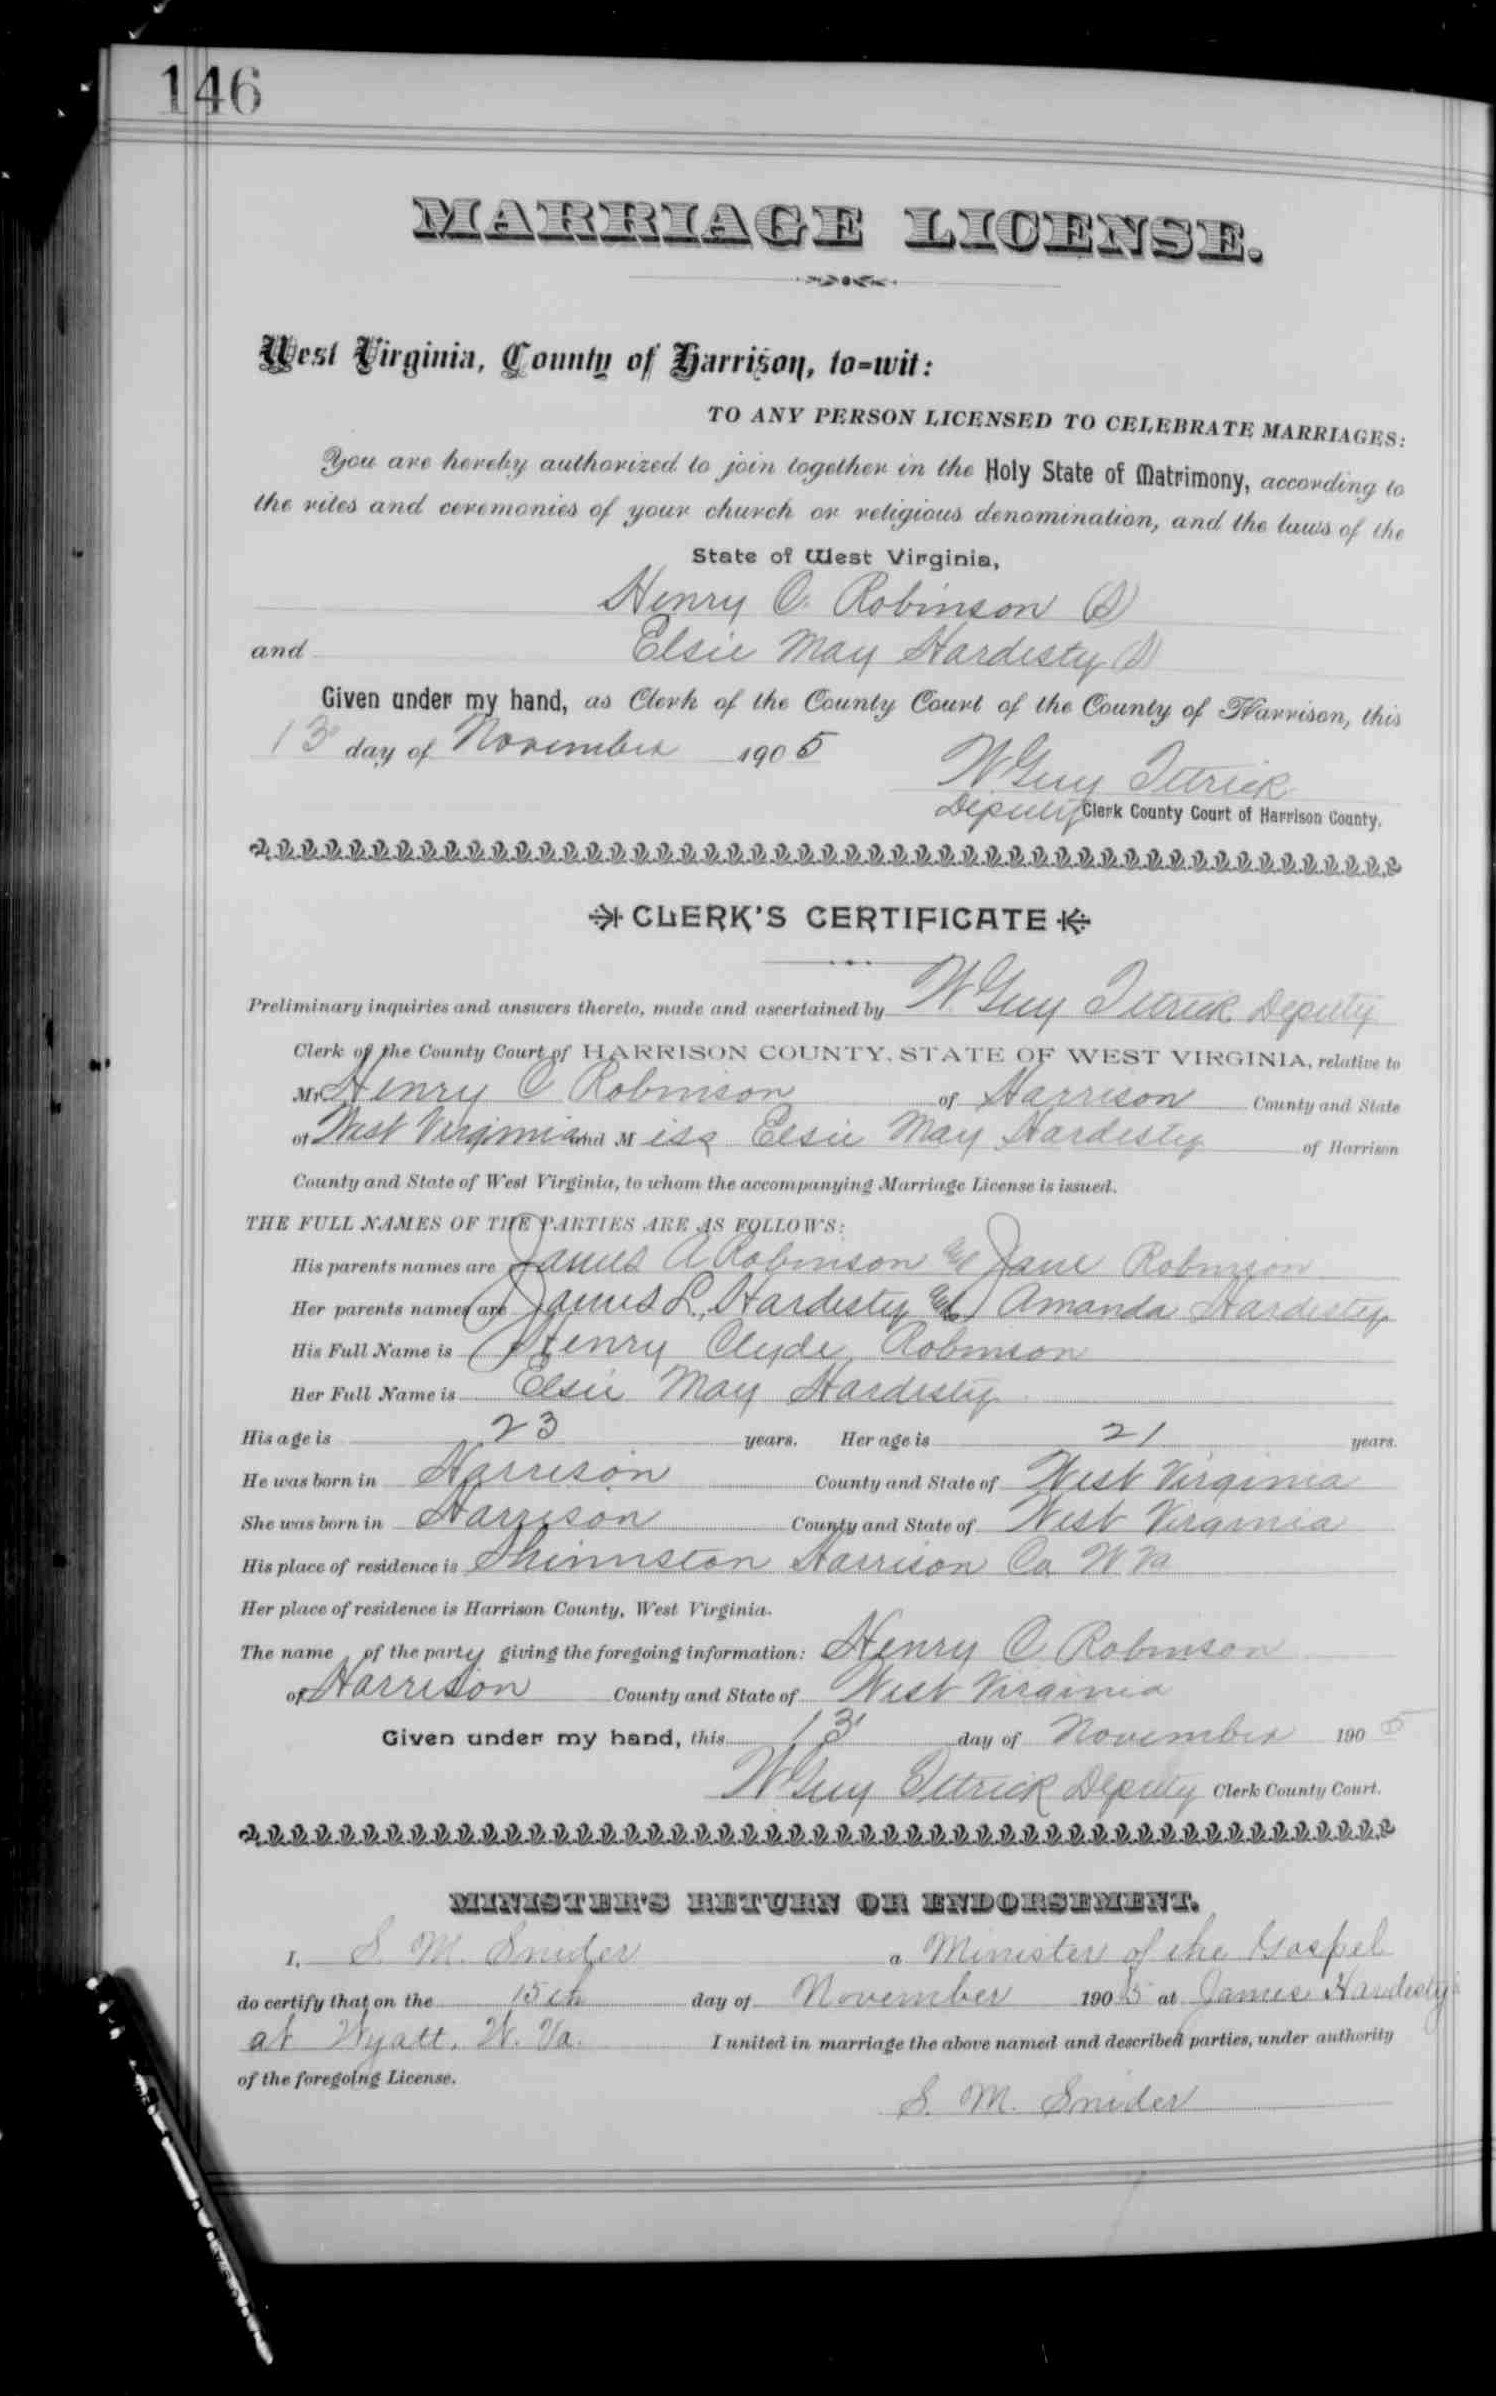 146
MARRIAGE LICENSE.
West Virginia, County of Harrison, to-wit:
TO ANY PERSON LICENSED TO CELEBRATE MARRIAGES:
You are hereby authorized to join together in the Holy State of Matrimony, according to
the rites and ceremonies of your church or religious denomination, and the laws of the
State of West Virginia,
Henry C. Robinson (S)
and Elsie May Hardesty (S)
Given under my hand, as Clerk of the County Court of the County of Harrison, this
13 day of November 1905
W Guy Tetrick
Deputy Clerk County Court of Harrison County.
CLERK'S CERTIFICATE
Preliminary inquiries and answers thereto, made and ascertained by W. Guy Tetrick Deputy
Clerk of the County Court of HARRISON COUNTY, STATE OF WEST VIRGINIA, relative to
Mr Henry C Robinson of Harrison County and State
of West Virginia and Miss Elsie May Hardesty of Harrison
County and State of West Virginia, to whom the accompanying Marriage License is issued.
THE FULL NAMES OF THE PARTIES ARE AS FOLLOWS:
His parents names are James A Robinson & Jane Robinson
Her parents names are James L. Hardesty & Amanda Hardesty
His Full Name is Henry Clyde Robinson
Her Full Name is Elsie May Hardesty
His age is 23 years. Her age is 21 years.
He was born in Harrison County and State of West Virginia
She was born in Harrison County and State of West Virginia
His place of residence is Shinnston Harrison Co. W Va
Her place of residence is Harrison County, West Virginia.
The name of the party giving the foregoing information: Henry C Robinson
of Harrison County and State of West Virginia
Given under my hand, this 13 day of November 1905
W Guy Tetrick Deputy Clerk County Court.
MINISTER'S RETURN OR ENDORSEMENT.
I, S. M. Snider a Minister of the Gospel
do certify that on the 15th day of November 1905 at James Hardesty's
at Wyatt, W. Va. I united in marriage the above named and described parties, under authority
of the foregoing License.
S. M. Snider